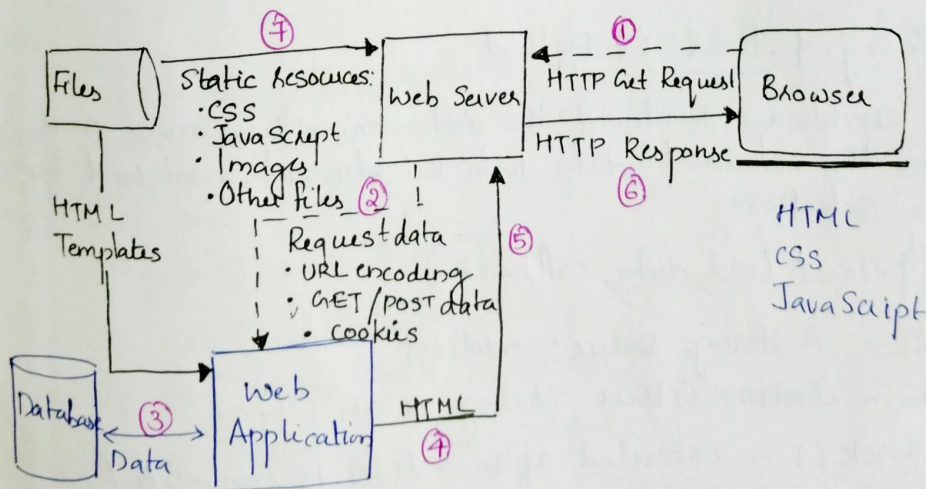 ⑦
①
Files
Static Resources:
• CSS
• JavaScript
• Images
• Other files
②
Web Server
HTTP Get Request
HTTP Response
⑥
Browser
HTML
CSS
JavaScript
HTML
Templates
Request data
• URL encoding
• GET/POST data
• Cookies
⑤
Database
③
Data
Web
Application
HTML
④